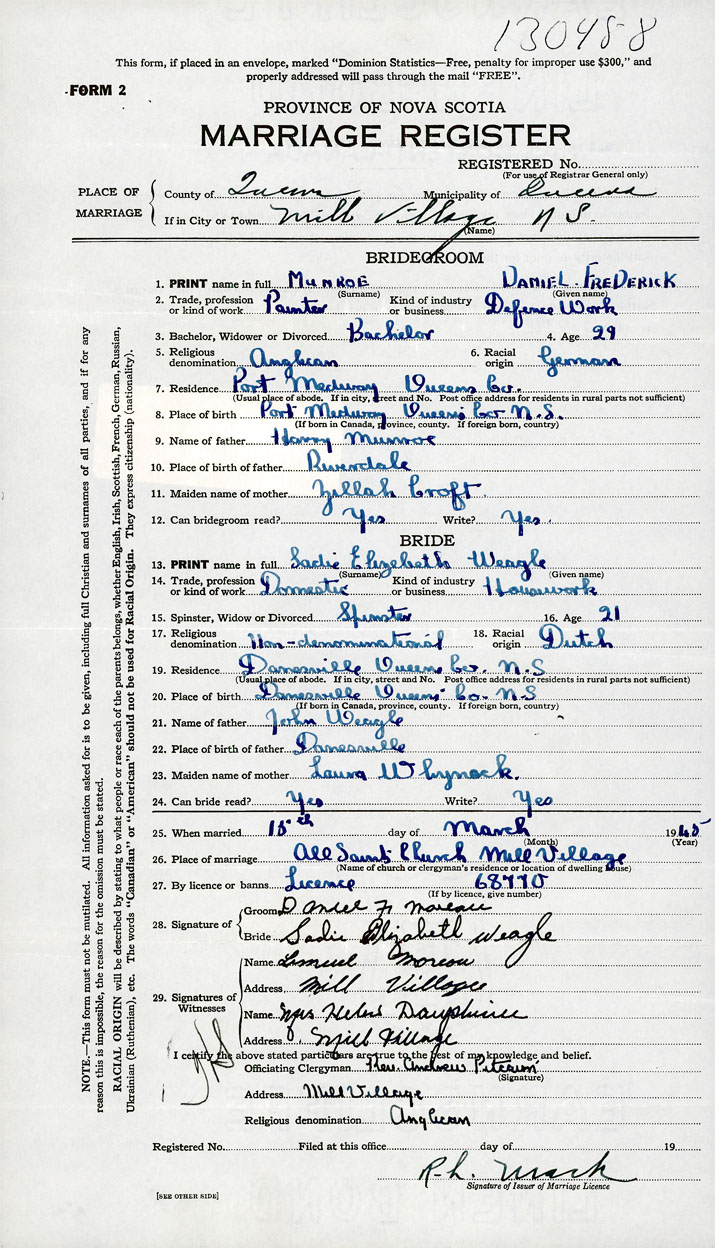 130458
This form, if placed in an envelope, marked "Dominion Statistics—Free, penalty for improper use $300," and
properly addressed will pass through the mail "FREE".
FORM 2
PROVINCE OF NOVA SCOTIA
MARRIAGE REGISTER
REGISTERED No.
(For use of Registrar General only)
PLACE OF MARRIAGE
County of Queens Municipality of Queens
If in City or Town Mill Village N S.
(Name)
BRIDEGROOM
1. PRINT name in full MUNROE DANIEL FREDERICK
(Surname) (Given name)
2. Trade, profession or kind of work Painter Kind of industry or business Defence Work
3. Bachelor, Widower or Divorced Bachelor 4. Age 29
5. Religious denomination Anglican 6. Racial origin German
7. Residence Port Medway Queens Co.
(Usual place of abode. If in city, street and No. Post office address for residents in rural parts not sufficient)
8. Place of birth Port Medway Queens Co N.S.
(If born in Canada, province, county. If foreign born, country)
9. Name of father Harry Munroe
10. Place of birth of father Riverdale
11. Maiden name of mother Zillah Croft
12. Can bridegroom read? Yes Write? Yes
BRIDE
13. PRINT name in full Sadie Elizebeth Weagle
(Surname) (Given name)
14. Trade, profession or kind of work Domestic Kind of industry or business Housework
15. Spinster, Widow or Divorced Spinster 16. Age 21
17. Religious denomination Non-denominational 18. Racial origin Dutch
19. Residence Danesville Queens Co. N.S
(Usual place of abode. If in city, street and No. Post office address for residents in rural parts not sufficient)
20. Place of birth Danesville Queens Co. N S
(If born in Canada, province, county. If foreign born, country)
21. Name of father John Weagle
22. Place of birth of father Danesville
23. Maiden name of mother Laura Whynock.
24. Can bride read? Yes Write? Yes
25. When married 15th day of March 1945
(Month) (Year)
26. Place of marriage All Saints Church Mill Village
(Name of church or clergyman's residence or location of dwelling house)
27. By licence or banns Licence 68770
(If by licence, give number)
28. Signature of
Groom Daniel F. Moreau
Bride Sadie Elizabeth Weagle
29. Signatures of Witnesses
Name Lemuel Moreau
Address Mill Village
Name Mrs Helen Dauphinee
Address Mill Village
I certify the above stated particulars are true to the best of my knowledge and belief.
Officiating Clergyman Rev. Andrew Pitcairn
(Signature)
Address Mill Village
Religious denomination Anglican
Registered No. Filed at this office day of 19
Signature of Issuer of Marriage Licence
[SEE OTHER SIDE]
NOTE.—This form must not be mutilated. All information asked for is to be given, including full Christian and surnames of all parties, and if for any
reason this is impossible, the reason for the omission must be stated.
RACIAL ORIGIN will be described by stating to what people or race each of the parents belongs, whether English, Irish, Scottish, French, German, Russian,
Ukrainian (Ruthenian), etc. The words "Canadian" or "American" should not be used for Racial Origin. They express citizenship (nationality).